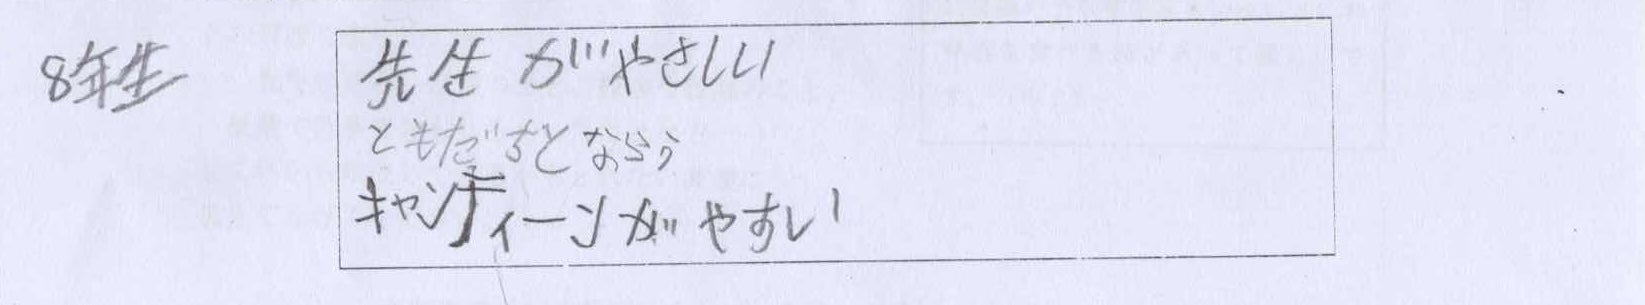 8年生
先生がやさしい
ともだちとならう
キャンディーンがやすい